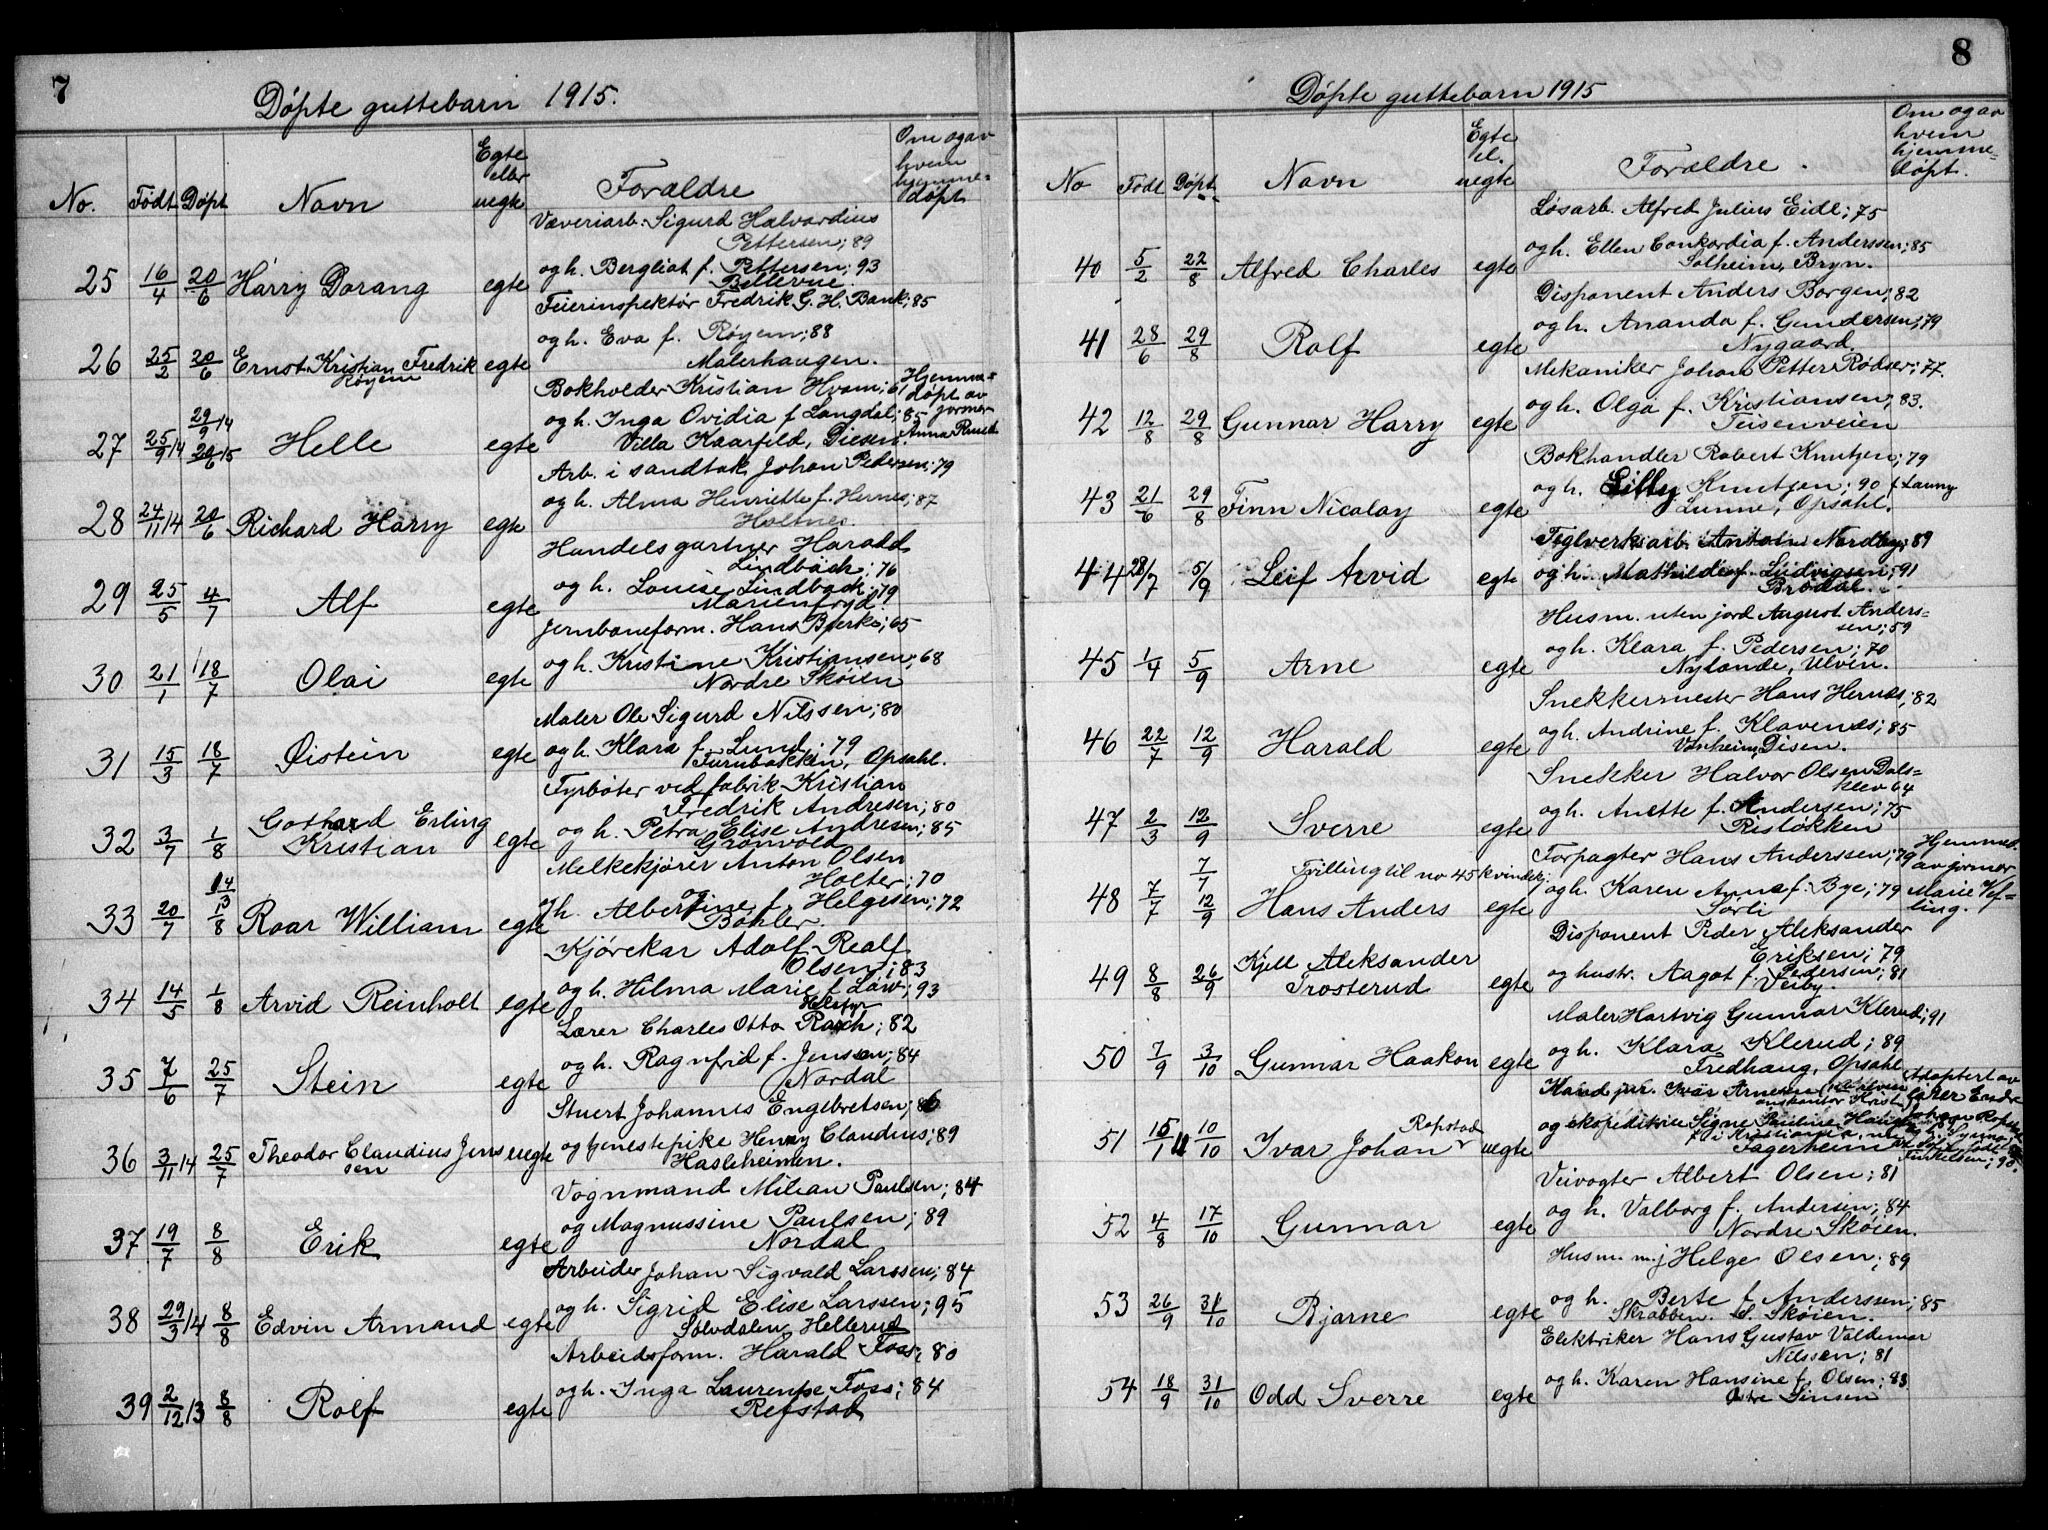 7
Døpte guttebarn 1915.
No. Født Døpt Navn Egte eller uegte Forældre Om og av hvem hjemme=døpt
Væveriarb. Sigurd Halvardius
Pettersen; 89
25 16/4 20/6 Harry Dorang egte og h. Bergliot f. Pettersen; 93
Bellevue.
Feierinspektør Fredrik G. H. Bank; 85
og h. Eva f. Røyem; 88
26 25/2 20/6 Ernst Kristian Fredrik egte Malerhaugen.
Røyem
Bokholder Kristian Hvam; 61 Hjemme=
døpt av
29/9 14 og h. Inga Ovidia f. Langdal; 85 jormor
27 25/9 14 20/6 15 Helle egte Villa Kaarfeld, Disen. Anna Ruud
Arb. i sandtak Johan Pedersen; 79
og h. Alma Henriette f. Hernes; 87
28 24/11 14 20/6 Richard Harry egte Holtnes.
Handelsgartner Harald
Lindbäck; 76
29 25/5 4/7 Alf egte og h. Louise Lindbäck; 79
Marienfryd.
Jernbaneform. Hans Bjerke; 65
og h. Kristine Kristiansen; 68
30 21/1 18/7 Olai egte Nordre Skøien
Maler Ole Sigurd Nilssen; 80
31 15/3 18/7 Øistein egte og h. Klara f. Lund; 79
Furubakken, Opsahl.
Fyrbøter ved fabrik Kristian
Fredrik Andresen; 80
Gothard Erling og h. Petra Elise Andresen; 85
32 3/7 1/8 Kristian egte Grønvold
Melkekjører Anton Olsen
Holter; 70
33 20/7 1/8 Roar William egte og h. Albertine f. Helgesen; 72
Bøhler.
Kjørekar Adolf Realf
Olsen; 83
34 14/5 1/8 Arvid Reinholt egte og h. Hilma Marie f. Löw; 93
Lærer Charles Otto Rasch; 82
og h. Ragnfrid f. Jenssen; 84
35 7/6 25/7 Stein egte Nordal
Stuert Johannes Engebretsen; 86
36 3/11 14 25/7 Theodor Claudius Jens uegte og tjenestepike Henny Claudius; 89
sen Hasleheimen.
Vognmand Milian Paulsen; 84
og Magnussine Paulsen; 89
37 19/7 8/8 Erik egte Nordal
Arbeider Johan Sigvald Larssen; 84
og h. Sigrid Elise Larssen; 95
38 29/3 14 8/8 Edvin Armand egte Solvdalen, Hellerud
Arbeidsform. Harald Foss; 80
og h. Inga Laurense Foss; 84
39 2/12 13 8/8 Rolf egte Refstad
8
Døpte guttebarn 1915
No Født Døpt. Navn Egte el. uegte Forældre. Om og av hvem hjemme=døpt.
Løsarb. Alfred Julius Eidl; 75
og h. Ellen Conkordia f. Anderssen; 85
40 5/2 22/8 Alfred Charles egte Solheim, Bryn.
Disponent Anders Borgen; 82
og h. Ananda f. Gundersen; 79
41 28/6 29/8 Rolf egte Nygaard
Mekaniker Johan Petter Rødser; 77.
og h. Olga f. Kristiansen; 83.
42 12/8 29/8 Gunnar Harry egte Teisenveien
Bokhandler Robert Knutzen; 79
og h. Lilly Knutzon; 90 f. Launy
43 21/6 29/8 Finn Nicolay egte Lunne, Opsahl.
Teglverksarb. Anton Nordby; 89
44 28/7 5/9 Leif Arvid egte og h. Mathilde f. Ludvigsen; 91
Brødal.
Husm. uten jord August Anders=
sen; 59
og h. Klara f. Pedersen; 70
45 1/4 5/9 Arne egte Nylænde, Ulven.
Snekkermester Hans Hernæs; 82
og h. Andrine f. Klavenæs; 85
46 22/7 12/9 Harald egte Vonheim, Disen.
Snekker Halvor Olsen Dals=
klev 64
og h. Anette f. Andersen; 75
47 2/3 12/9 Sverre egte Risløkken
Forpagter Hans Anderssen; 79 Hjemmed.
7/7 Tvilling til no 45 kvindekj. av jormor
48 7/7 12/9 Hans Anders egte og h. Karen Anna f. Bye; 79 Marie Vef=
Sørli ling.
Disponent Peder Aleksander
Eriksen; 79
Kjell Aleksander
49 8/8 26/9 Trosterud egte og hustr. Aagot f. Pedersen; 81
Veiby.
Maler Hartvig Gunnar Klerud; 91
50 7/9 3/10 Gunnar Haakon egte og h. Klara Klerud; 89
Fredhaug, Opsahl
Hand. jur. Ivar Arnesen Adoptert av
lærer
og ekspeditrice Signe Pauline
51 10/10 Ivar Johan Ropstad uegte Fagerheim
Veivogter Albert Olsen; 81
og h. Valborg f. Andersen; 84
52 4/8 17/10 Gunnar egte Nordre Skøien.
Husm. m. j Helge Olsen; 89
og h. Berte f. Anderssen; 85
53 26/9 31/10 Bjarne egte Skrabben. S. Skøien.
Elektriker Hans Gustav Valdemar
Nilssen; 81
og h. Karen Hansine f. Olsen; 83
54 18/9 31/10 Odd Sverre egte Østre Sinsen